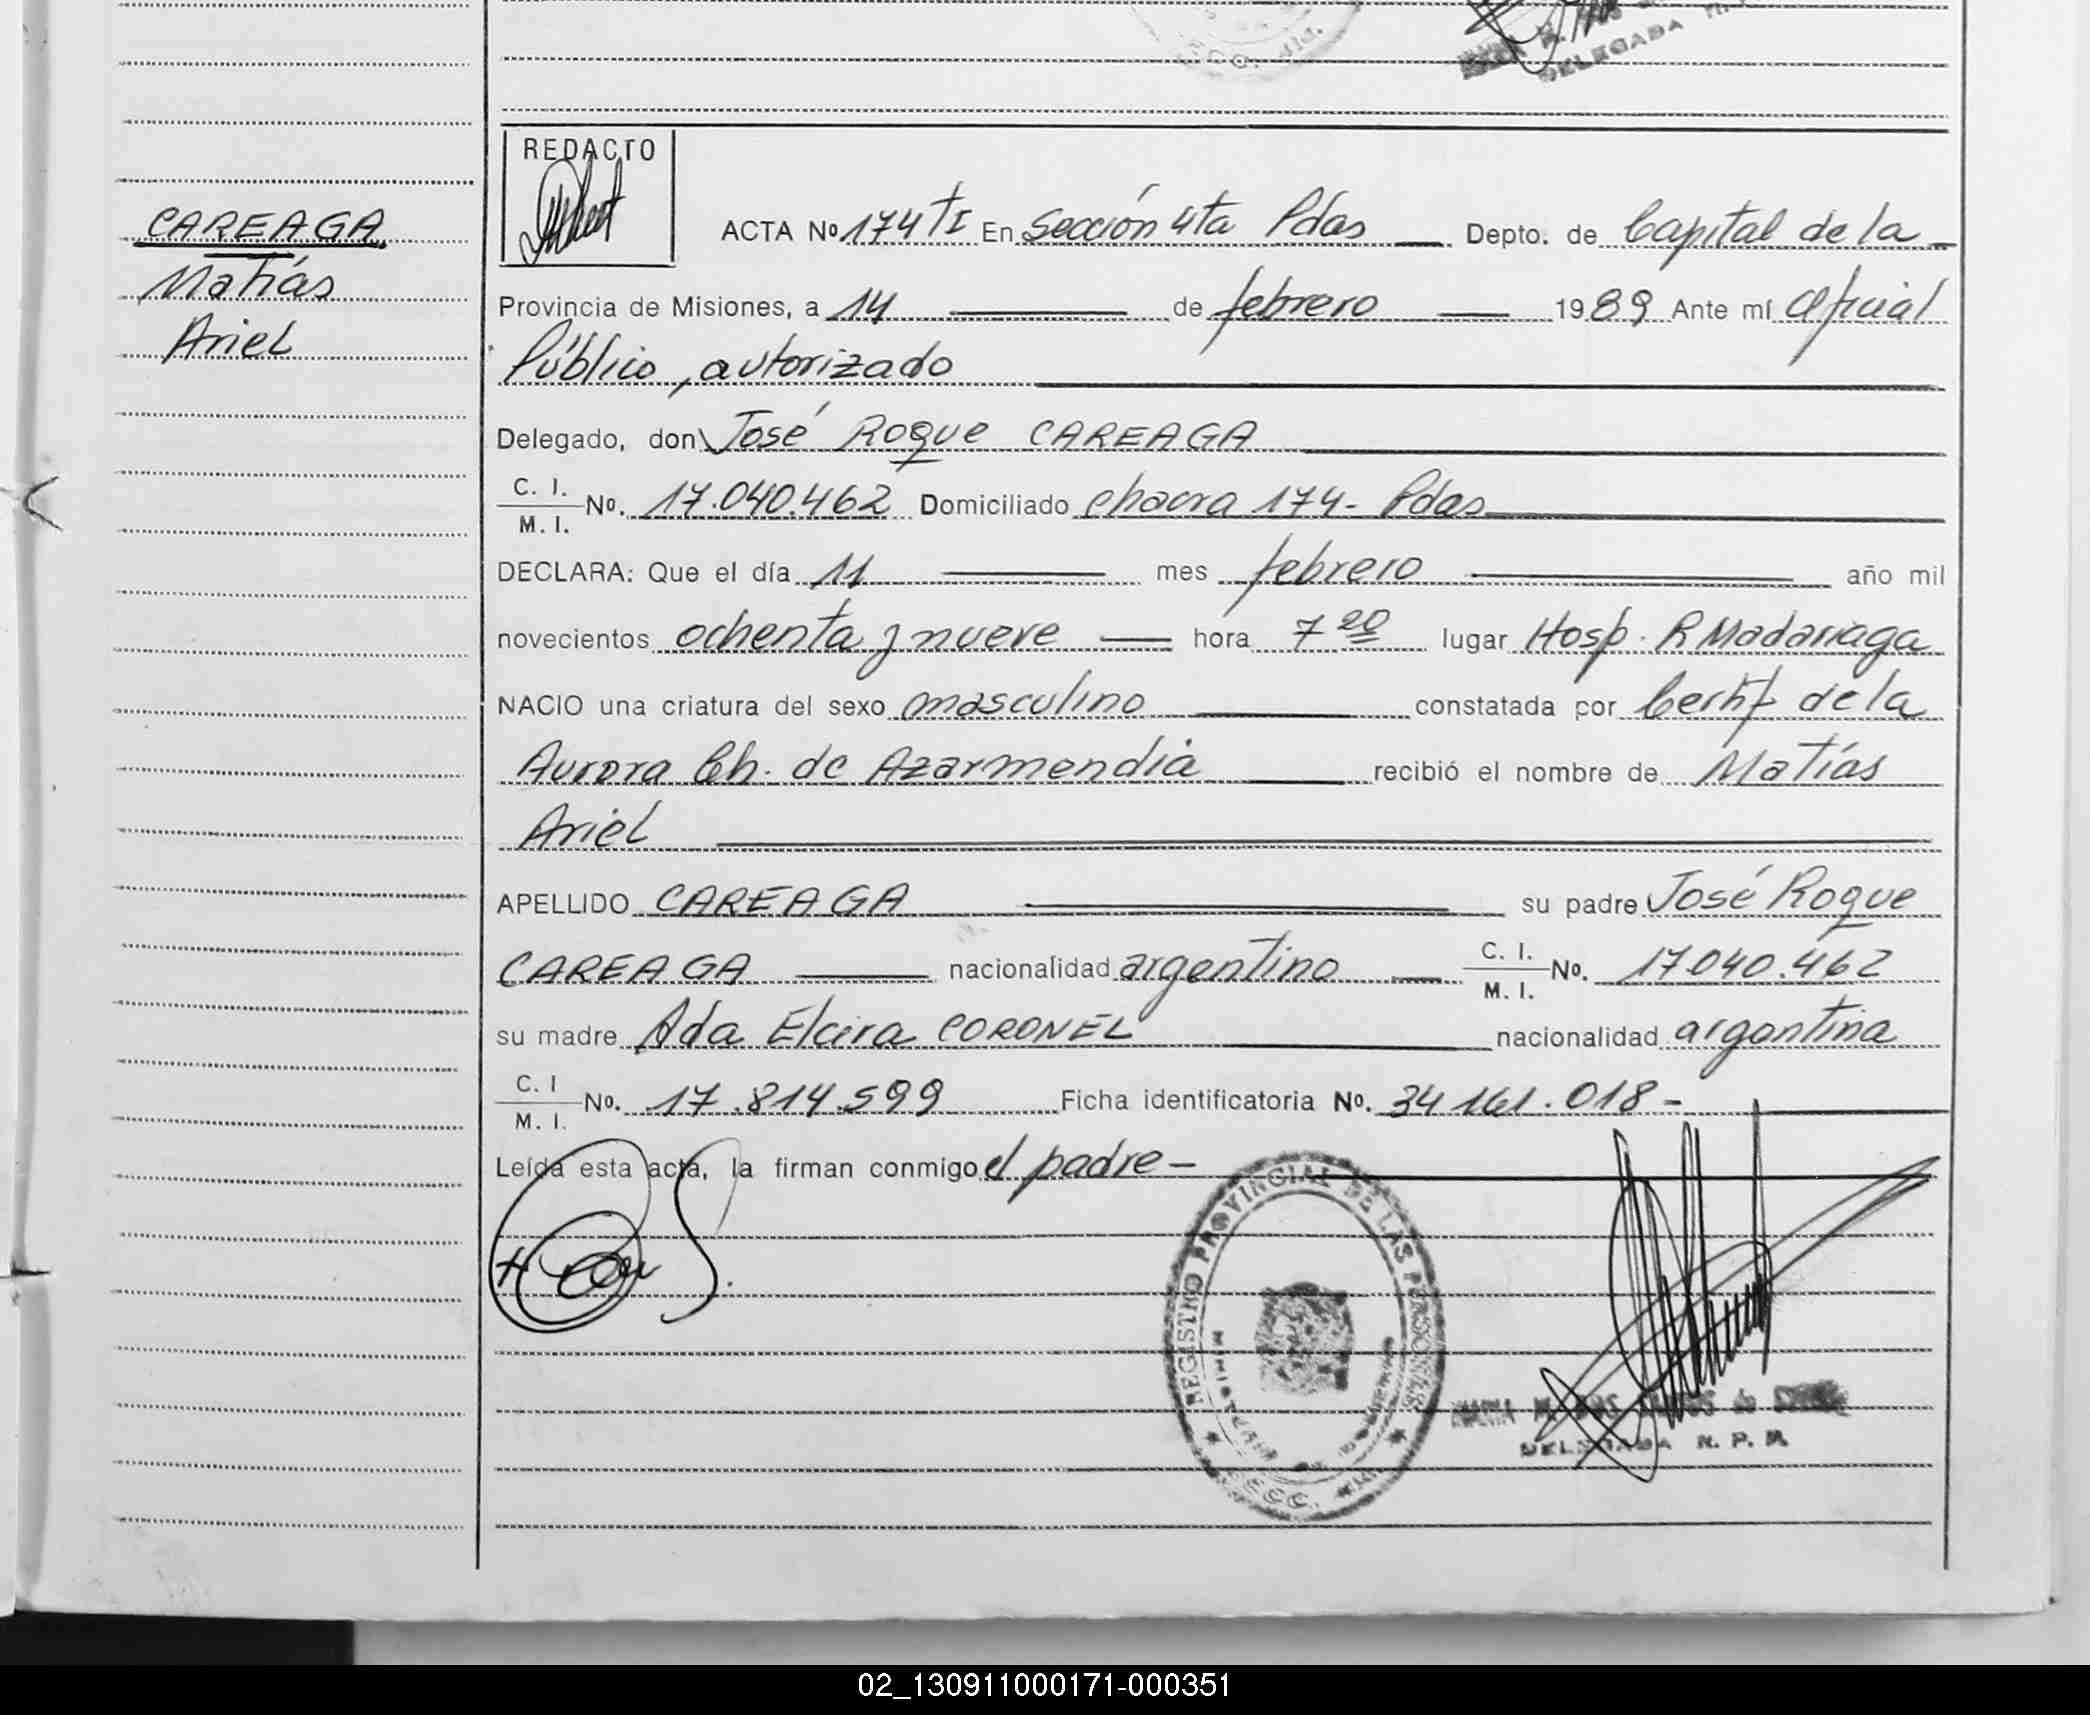 DELEGADA
REDACTO
CAREAGA
Matías
Ariel
ACTA Nº 174 TI En Sección 4ta Pdas Depto. de Capital de la
Provincia de Misiones, a 14 de febrero 1989 Ante mí Oficial
Público, autorizado
Delegado, don José Roque CAREAGA
C. I. / M. I. Nº. 17.040.462 Domiciliado chacra 174- Pdas
DECLARA: Que el día 11 mes febrero año mil
novecientos ochenta y nueve hora 7 20 lugar Hosp. R Madariaga
NACIO una criatura del sexo masculino constatada por Certif de la
Aurora Ch. de Azarmendia recibió el nombre de Matías
Ariel
APELLIDO CAREAGA su padre José Roque
CAREAGA nacionalidad argentino C. I. / M. I. Nº. 17.040.462
su madre Ada Elcira CORONEL nacionalidad argentina
C. I / M. I. Nº. 17.814.599 Ficha identificatoria Nº. 34 161.018-
Leída esta acta, la firman conmigo el padre-
REGISTRO PROVINCIAL DE LAS PERSONAS
DELEGADA R. P. P.
02_130911000171-000351